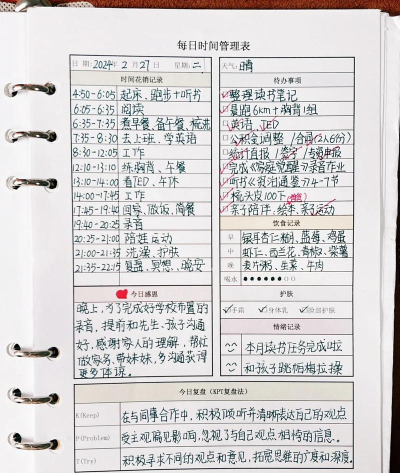 每日时间管理表
日期: 2024年2月27日 星期: 二
天气: 晴
时间花销记录
4:50-6:05 起床、跑步+听书
6:05-6:35 阅读
6:35-7:35 煮早餐、备午餐、梳洗
7:35-8:30 去上班、学英语
8:30-12:05 工作
12:10-13:10 练胸肩、午餐
13:10-14:00 看TED、午休
14:00-17:45 工作
17:45-19:40 回家、做饭、简餐
19:40-20:25 录音
20:25-21:00 陪娃运动
21:00-21:35 洗澡、护肤
21:35-22:15 复盘、冥想、晚安
待办事项
整理读书笔记
晨跑6km+胸肩1组
英语、TED
公积金调整/合同(2人6份)
统计直报/签字/
完成《家庭觉醒》录音作业
听书《资治通鉴》4-7节
梳头皮100下
亲子陪伴、绘本、亲子运动
饮食记录
早 银耳杏仁糊、蓝莓、鸡蛋
中 虾仁、西兰花、青椒、紫薯
晚 麦片粥、生菜、牛肉
喝水
护肤
手霜 身体乳 脸部护肤
情绪记录
本月读书任务完成啦
和孩子跳帕梅拉操
今日感恩
晚上，为了完成好学校布置的
录音，提前和先生、孩子沟通
好，感谢家人的理解，帮忙
做家务、带妹妹，多沟通获得
更多体谅。
今日复盘 (KPT复盘法)
K(Keep) 在与同事合作中，积极倾听并清晰表达自己的观点
P(Problem) 受主观偏见影响，忽视了与自己观点相悖的信息。
T(Try) 积极寻求不同的观点和意见，拓宽思维的广度和深度。